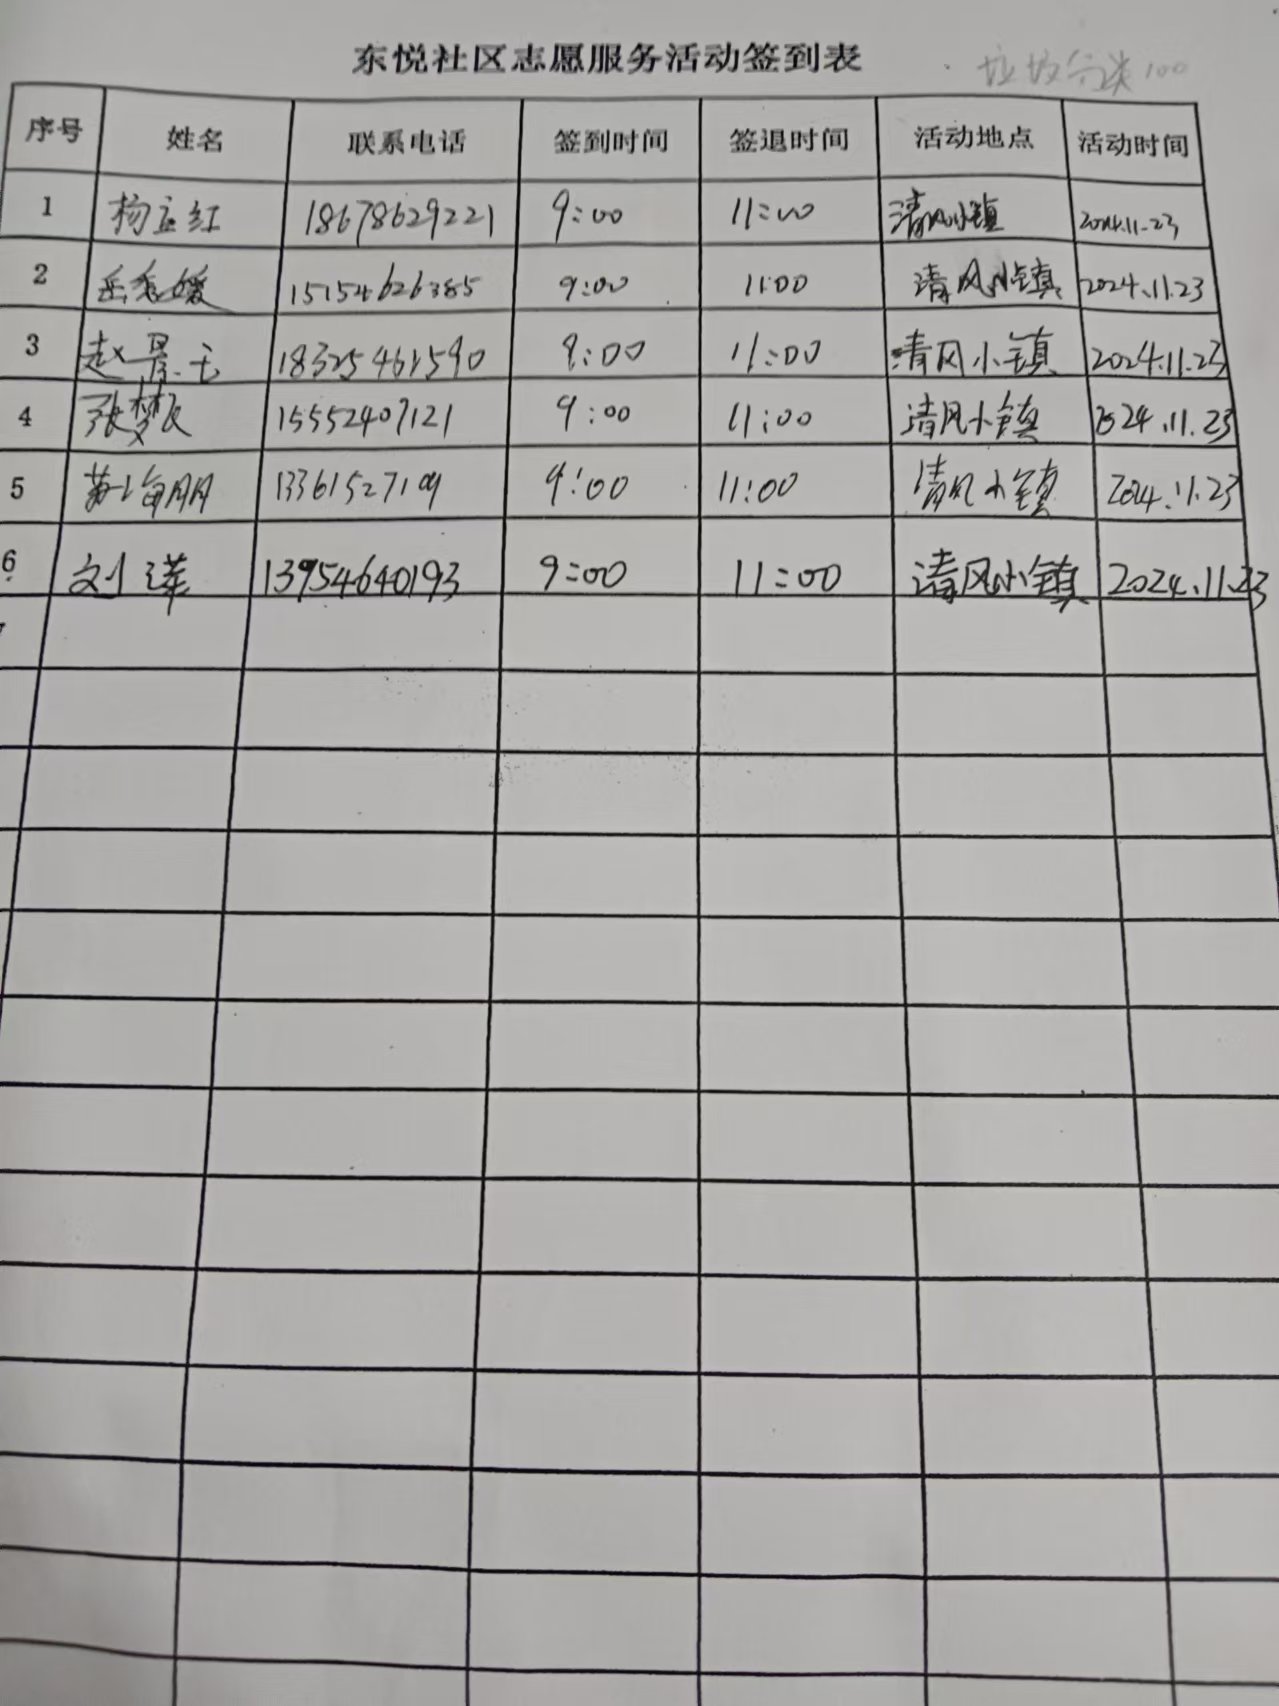 东悦社区志愿服务活动签到表
垃圾分类100
序号 姓名 联系电话 签到时间 签退时间 活动地点 活动时间
1 杨立红 18678629221 9:00 11:00 清风小镇 2024.11.23
2 岳秀媛 15154626385 9:00 11:00 清风小镇 2024.11.23
3 赵景 18325461590 9:00 11:00 清风小镇 2024.11.23
4 张梦 15552407121 9:00 11:00 清风小镇 2024.11.23
5 黄海朋 13361527109 9:00 11:00 清风小镇 2024.11.23
6 刘 13954640193 9:00 11:00 清风小镇 2024.11.23